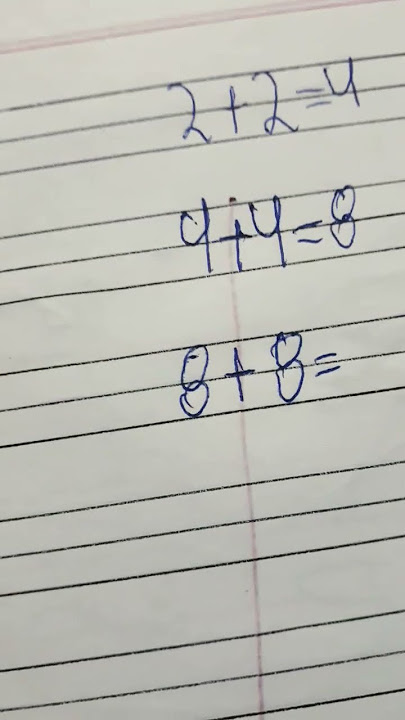 2+2=4
4+4=8
8+8=